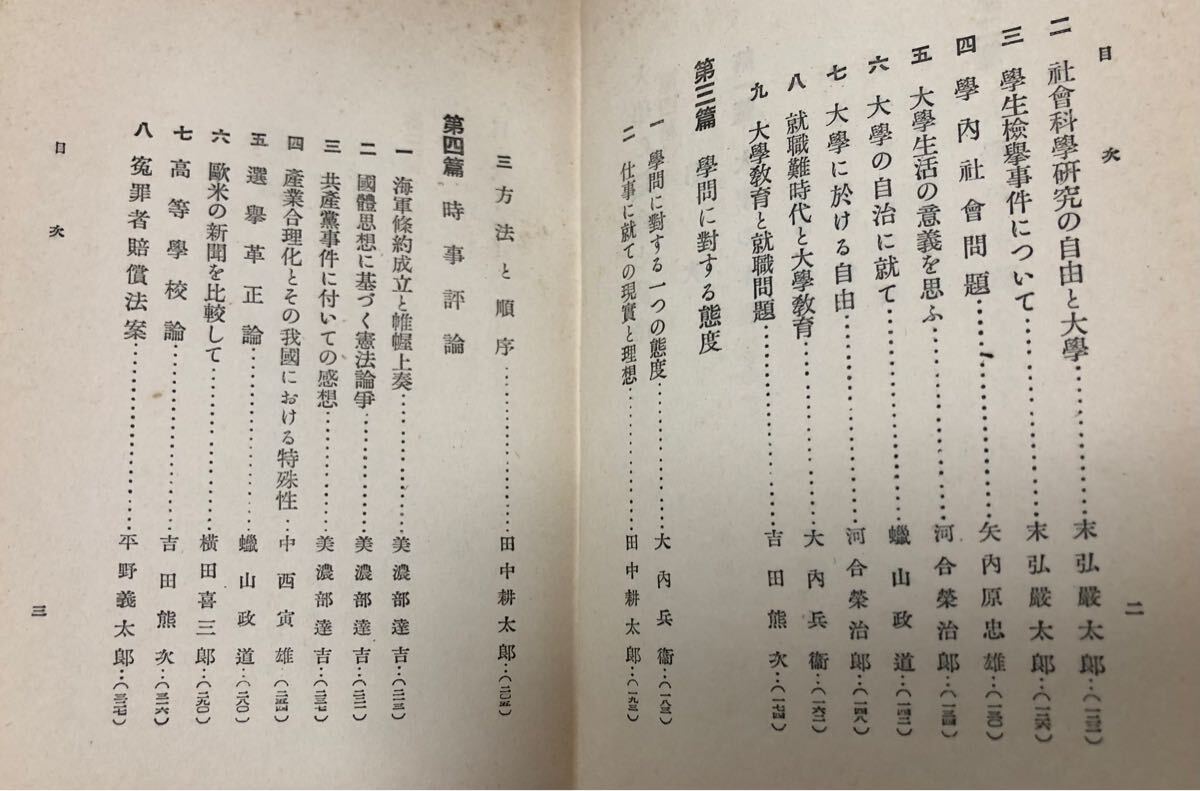 目次
二 社會科學研究の自由と大學……………末弘嚴太郎…(一二二)
三 學生檢擧事件について……………末弘嚴太郎…(一二六)
四 學內社會問題……………矢內原忠雄…(一三〇)
五 大學生活の意義を思ふ……………河合榮治郎…(一三四)
六 大學の自治に就て……………蠟山政道…(一四二)
七 大學に於ける自由……………河合榮治郎…(一四八)
八 就職難時代と大學敎育……………大內兵衞…(一六二)
九 大學敎育と就職問題……………吉田熊次…(一七四)
第三篇 學問に對する態度
一 學問に對する一つの態度……………大內兵衞…(一八三)
二 仕事に就ての現實と理想……………田中耕太郞…(一九三)
二
三 方法と順序……………田中耕太郞…(二〇五)
第四篇 時事評論
一 海軍條約成立と帷幄上奏……………美濃部達吉…(二一三)
二 國體思想に基づく憲法論爭……………美濃部達吉…(二二一)
三 共產黨事件に付いての感想……………美濃部達吉…(二三七)
四 產業合理化とその我國における特殊性…中西寅雄…(二五四)
五 選擧革正論……………蠟山政道…(二八〇)
六 歐米の新聞を比較して……………橫田喜三郞…(二九〇)
七 高等學校論……………吉田熊次…(三一六)
八 寃罪者賠償法案……………平野義太郞…(三二七)
目次
三